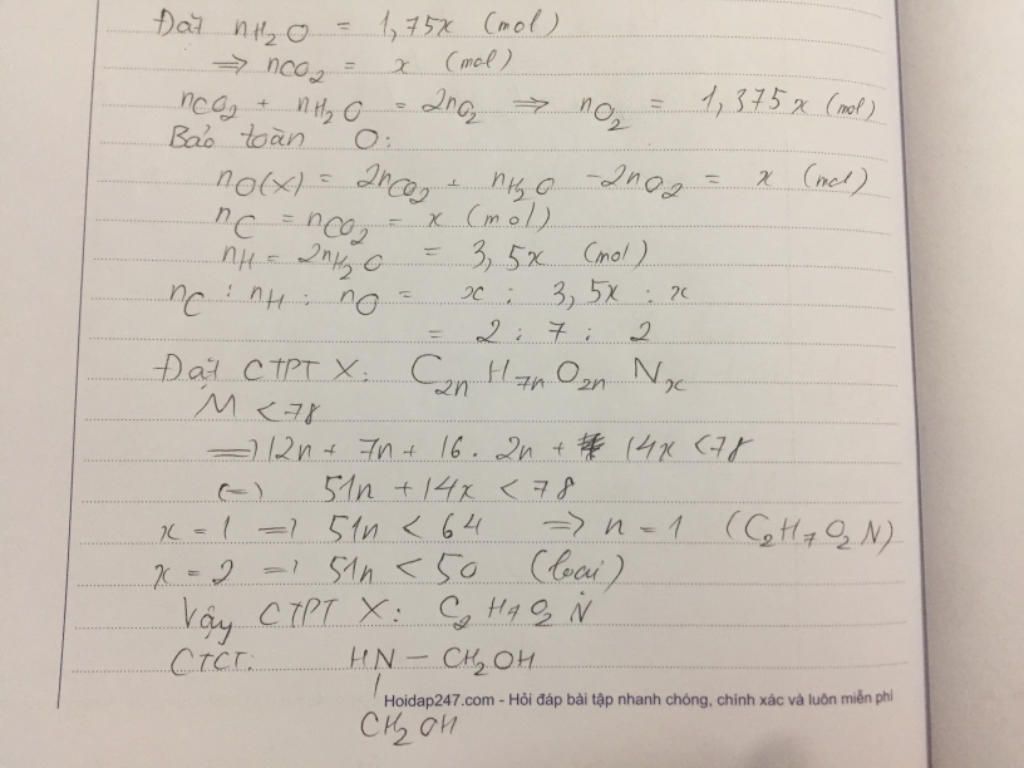 Đặt nH₂O = 1,75x (mol)
⇒ nCO₂ = x (mol)
nCO₂ + nH₂O = 2nO₂ ⇒ nO₂ = 1,375x (mol)
Bảo toàn O:
nO(X) = 2nCO₂ + nH₂O - 2nO₂ = x (mol)
nC = nCO₂ = x (mol)
nH = 2nH₂O = 3,5x (mol)
nC : nH : nO = x : 3,5x : x
= 2 : 7 : 2
Đặt CTPT X: C₂ₙ H₇ₙ O₂ₙ Nₓ
M < 78
⇒ 12n + 7n + 16. 2n + 14x < 78
(=) 51n + 14x < 78
x = 1 => 51n < 64 => n = 1 (C₂H₇O₂N)
x = 2 => 51n < 50 (loại)
Vậy CTPT X: C₂H₇O₂N
CTCT: HN - CH₂OH
|
Hoidap247.com - Hỏi đáp bài tập nhanh chóng, chính xác và luôn miễn phí
CH₂OH